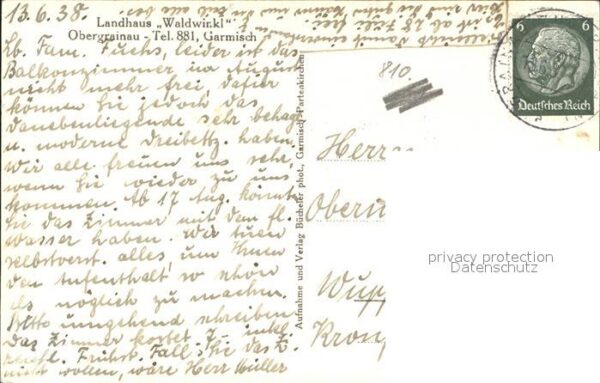 13.6.38.
Landhaus „Waldwinkl"
Obergrainau - Tel. 881, Garmisch
Lb. Fam. Fuchs, leider ist das
Balkonzimmer im August
nicht mehr frei, dafür
können Sie jedoch das
danebenliegende sehr behagl.
u. moderne Dreibettz. haben.
Wir alle freuen uns sehr,
wenn Sie wieder zu uns
kommen. Ab 17 Aug. könnten
Sie das Zimmer mit dem fl.
Wasser haben. Wir tuen
selbstverst. alles, um Ihnen
den Aufenthalt so schön
als möglich zu machen.
Bitte umgehend schreiben
das Zimmer kostet inkl.
Frühst. Fall Sie das Z.
nicht wollen, wäre Herr Müller
Aufnahme und Verlag Bücheler phot., Garmisch-Partenkirchen
810
6 6
Deutsches Reich
Herrn
Obern
Wupp
Kron
privacy protection
Datenschutz